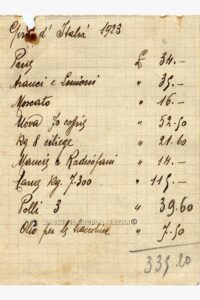 Giro d' Italia 1923
Pane £ 34.-
Aranci e Limoni " 35.-
Moscato " 16.-
Uova 70 coppie " 52.50
Kg 8 ciliege " 21.60
Mancia a Radicofani " 14.-
Carne Kg. 7.300 " 115.-
Polli 3 " 39.60
Olio per le macchine " 7.50
335.20